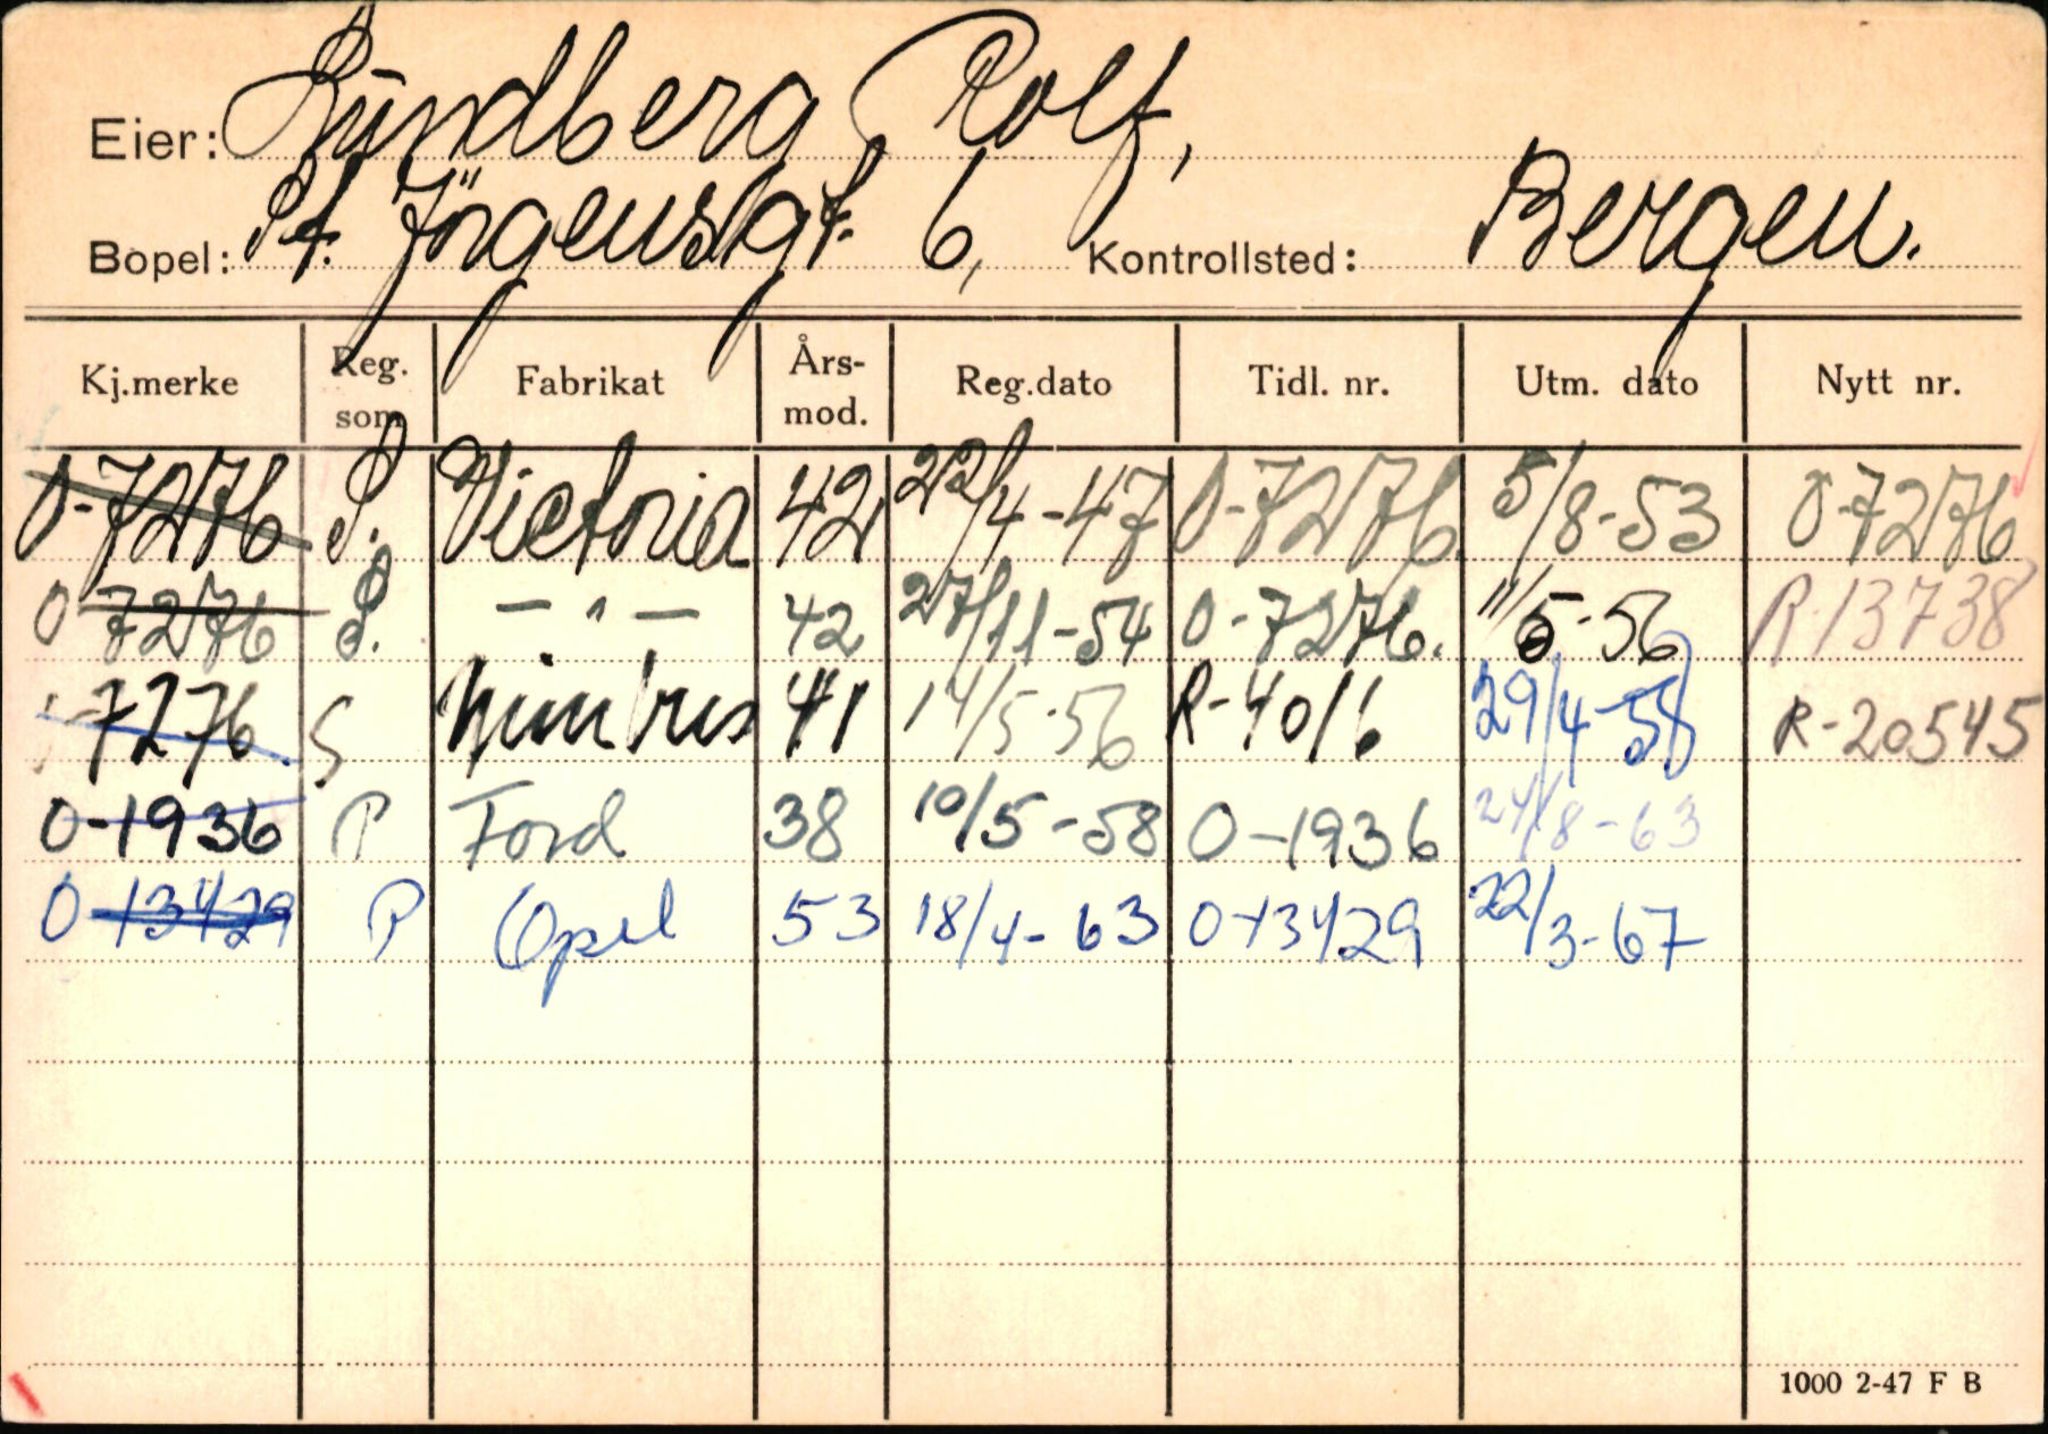 Eier: Sundberg, Rolf,
Bopel: St. Jörgensgt. 6, Kontrollsted: Bergen.
Kj.merke Reg. som Fabrikat Års-mod. Reg.dato Tidl. nr. Utm. dato Nytt nr.
O-7276 S. Victoria 42 22/4-47 O-7276 5/8-53 O-7276
O 7276 S. — " — 42 27/11-54 O-7276. 11/5-56 R-13738
-7276 S Nimbus 41 14/5-56 R-4016 29/4-58 R-20545
O-1936 P Ford 38 10/5-58 O-1936 24/8-63
O-13429 P Opel 53 18/4-63 O-13429 22/3-67
1000 2-47 F B